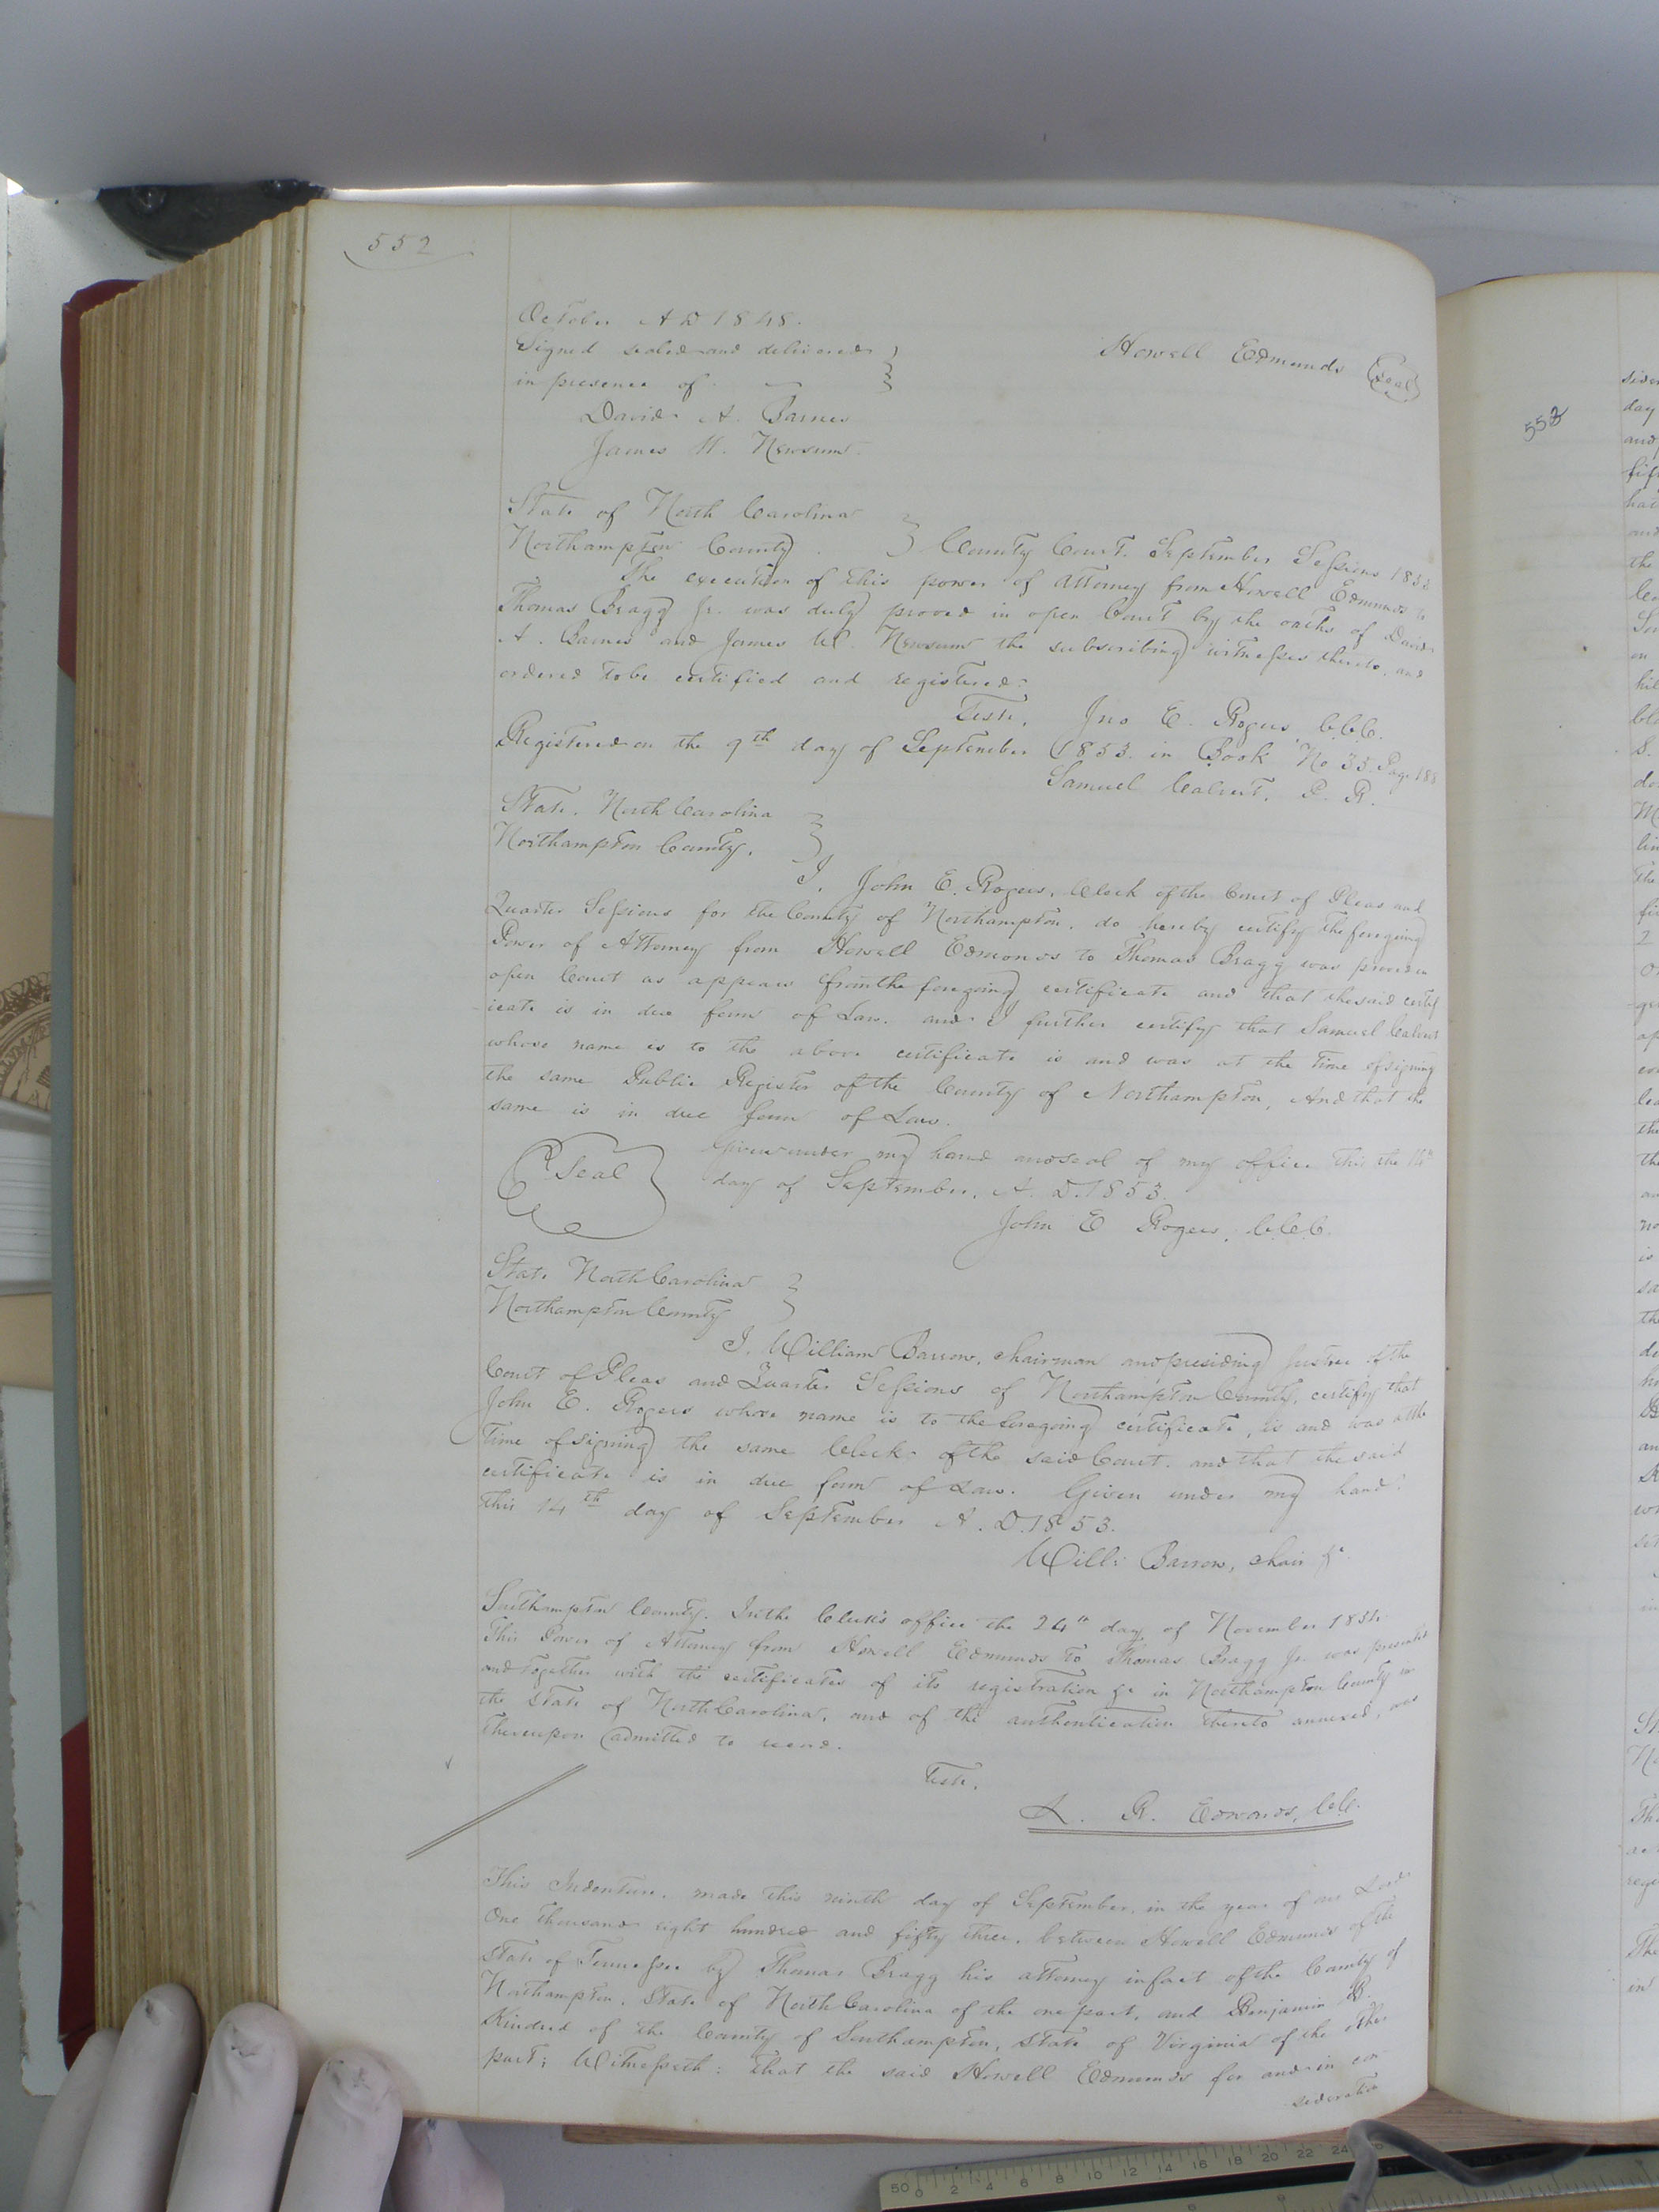 552
October A D 1848.
Signed sealed and delivered
in presence of
Howell Edmunds Seal
David A. Barnes
James W. Newsum
State of North Carolina
Northampton County. County Court. September Sessions 1853
The execution of this power of Attorney from Howell Edmunds to
Thomas Bragg Jr. was duly proved in open Court by the oaths of David
A. Barnes and James W. Newsum the subscribing witnesses thereto, and
ordered to be certified and registered.
Teste, Jno E. Rogers, C.C.C.
Registered on the 9th day of September 1853. in Book No 33. Page 188
Samuel Calvert, P. R.
State. North Carolina
Northampton County.
I, John E. Rogers, Clerk of the Court of Pleas and
Quarter Sessions for the County of Northampton, do hereby certify the foregoing
Power of Attorney from Howell Edmonds to Thomas Bragg was proved in
open Court as appears from the foregoing certificate and that the said certif-
icate is in due form of Law. and I further certify that Samuel Calvert
whose name is to the above certificate is and was at the time of signing
the same Public Register of the County of Northampton, And that the
same is in due form of Law.
Seal Given under my hand and seal of my office this the 14th
day of September, A. D. 1853.
John E Rogers, C.C.C.
State North Carolina
Northampton County
I, William Barrow, chairman and presiding Justice of the
Court of Pleas and Quarter Sessions of Northampton County, certify that
John E. Rogers whose name is to the foregoing certificate, is and was at the
Time of signing the same Clerk of the said Court. and that the said
certificate is in due form of Law. Given under my hand
this 14th day of September A. D. 1853.
Will: Barrow, chair &c.
Southampton County. In the Clerk's office the 24th day of November 1854.
This Power of Attorney from Howell Edmunds to Thomas Bragg Jr. was presented
and together with the certificates of its registration &c in Northampton County in
the State of North Carolina, and of the authentication thereto annexed, was
thereupon admitted to record.
Teste.
L. R. Edwards, C.C.
This Indenture. made this ninth day of September, in the year of our Lord
One thousand eight hundred and fifty three. between Howell Edmunds of the
State of Tennessee by Thomas Bragg his attorney in fact of the County of
Northampton. State of North Carolina of the one part, and Benjamin B.
Kindred of the County of Southampton, State of Virginia of the other
part; Witnesseth: that the said Howell Edmunds for and in con-
sideration
553